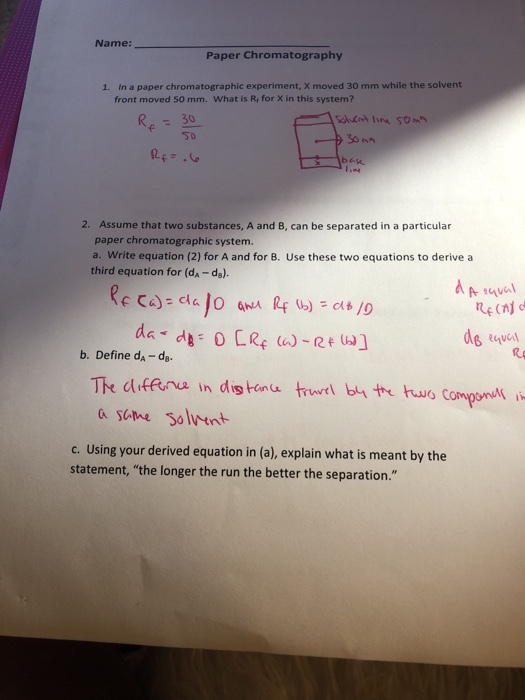 Name:
Paper Chromatography
1. In a paper chromatographic experiment, X moved 30 mm while the solvent
front moved 50 mm. What is Rf for X in this system?
Rf = 30
50
Rf = .6
Solvent line 50mm
30mm
base
line
x
2. Assume that two substances, A and B, can be separated in a particular
paper chromatographic system.
a. Write equation (2) for A and for B. Use these two equations to derive a
third equation for (dA – dB).
Rf (a) = da/D and Rf (b) = dB/D
da - dB = D [Rf (a) - Rf (b)]
dA equal
Rf(A) d
dB equal
R
b. Define dA – dB.
The diffence in distance travel by the two componds in
a same solvent
c. Using your derived equation in (a), explain what is meant by the
statement, "the longer the run the better the separation."